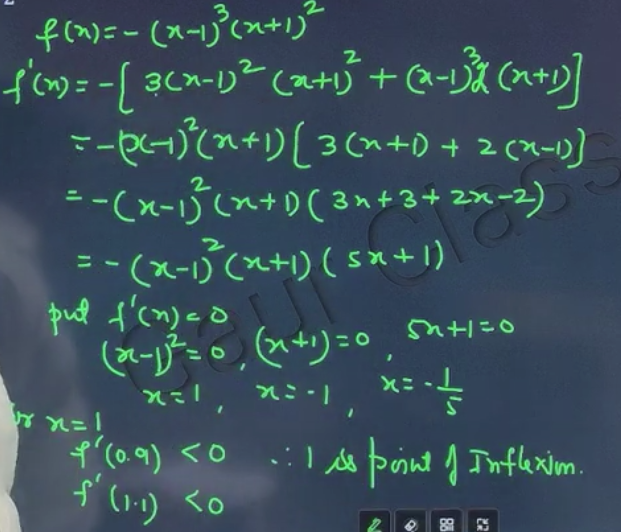 f(x) = - (x-1)³ (x+1)²
f'(x) = - [ 3(x-1)² (x+1)² + (x-1)³ 2 (x+1) ]
= - (x-1)² (x+1) [ 3(x+1) + 2(x-1) ]
= - (x-1)² (x+1) ( 3x+3+2x-2 )
= - (x-1)² (x+1) ( 5x+1 )
put f'(x) = 0
(x-1)² = 0 , (x+1) = 0 , 5x+1 = 0
x = 1 , x = -1 , x = -1/5
or x = 1
f'(0.9) < 0 ∴ 1 is point of Inflexion.
f'(1.1) < 0
Gaur Class